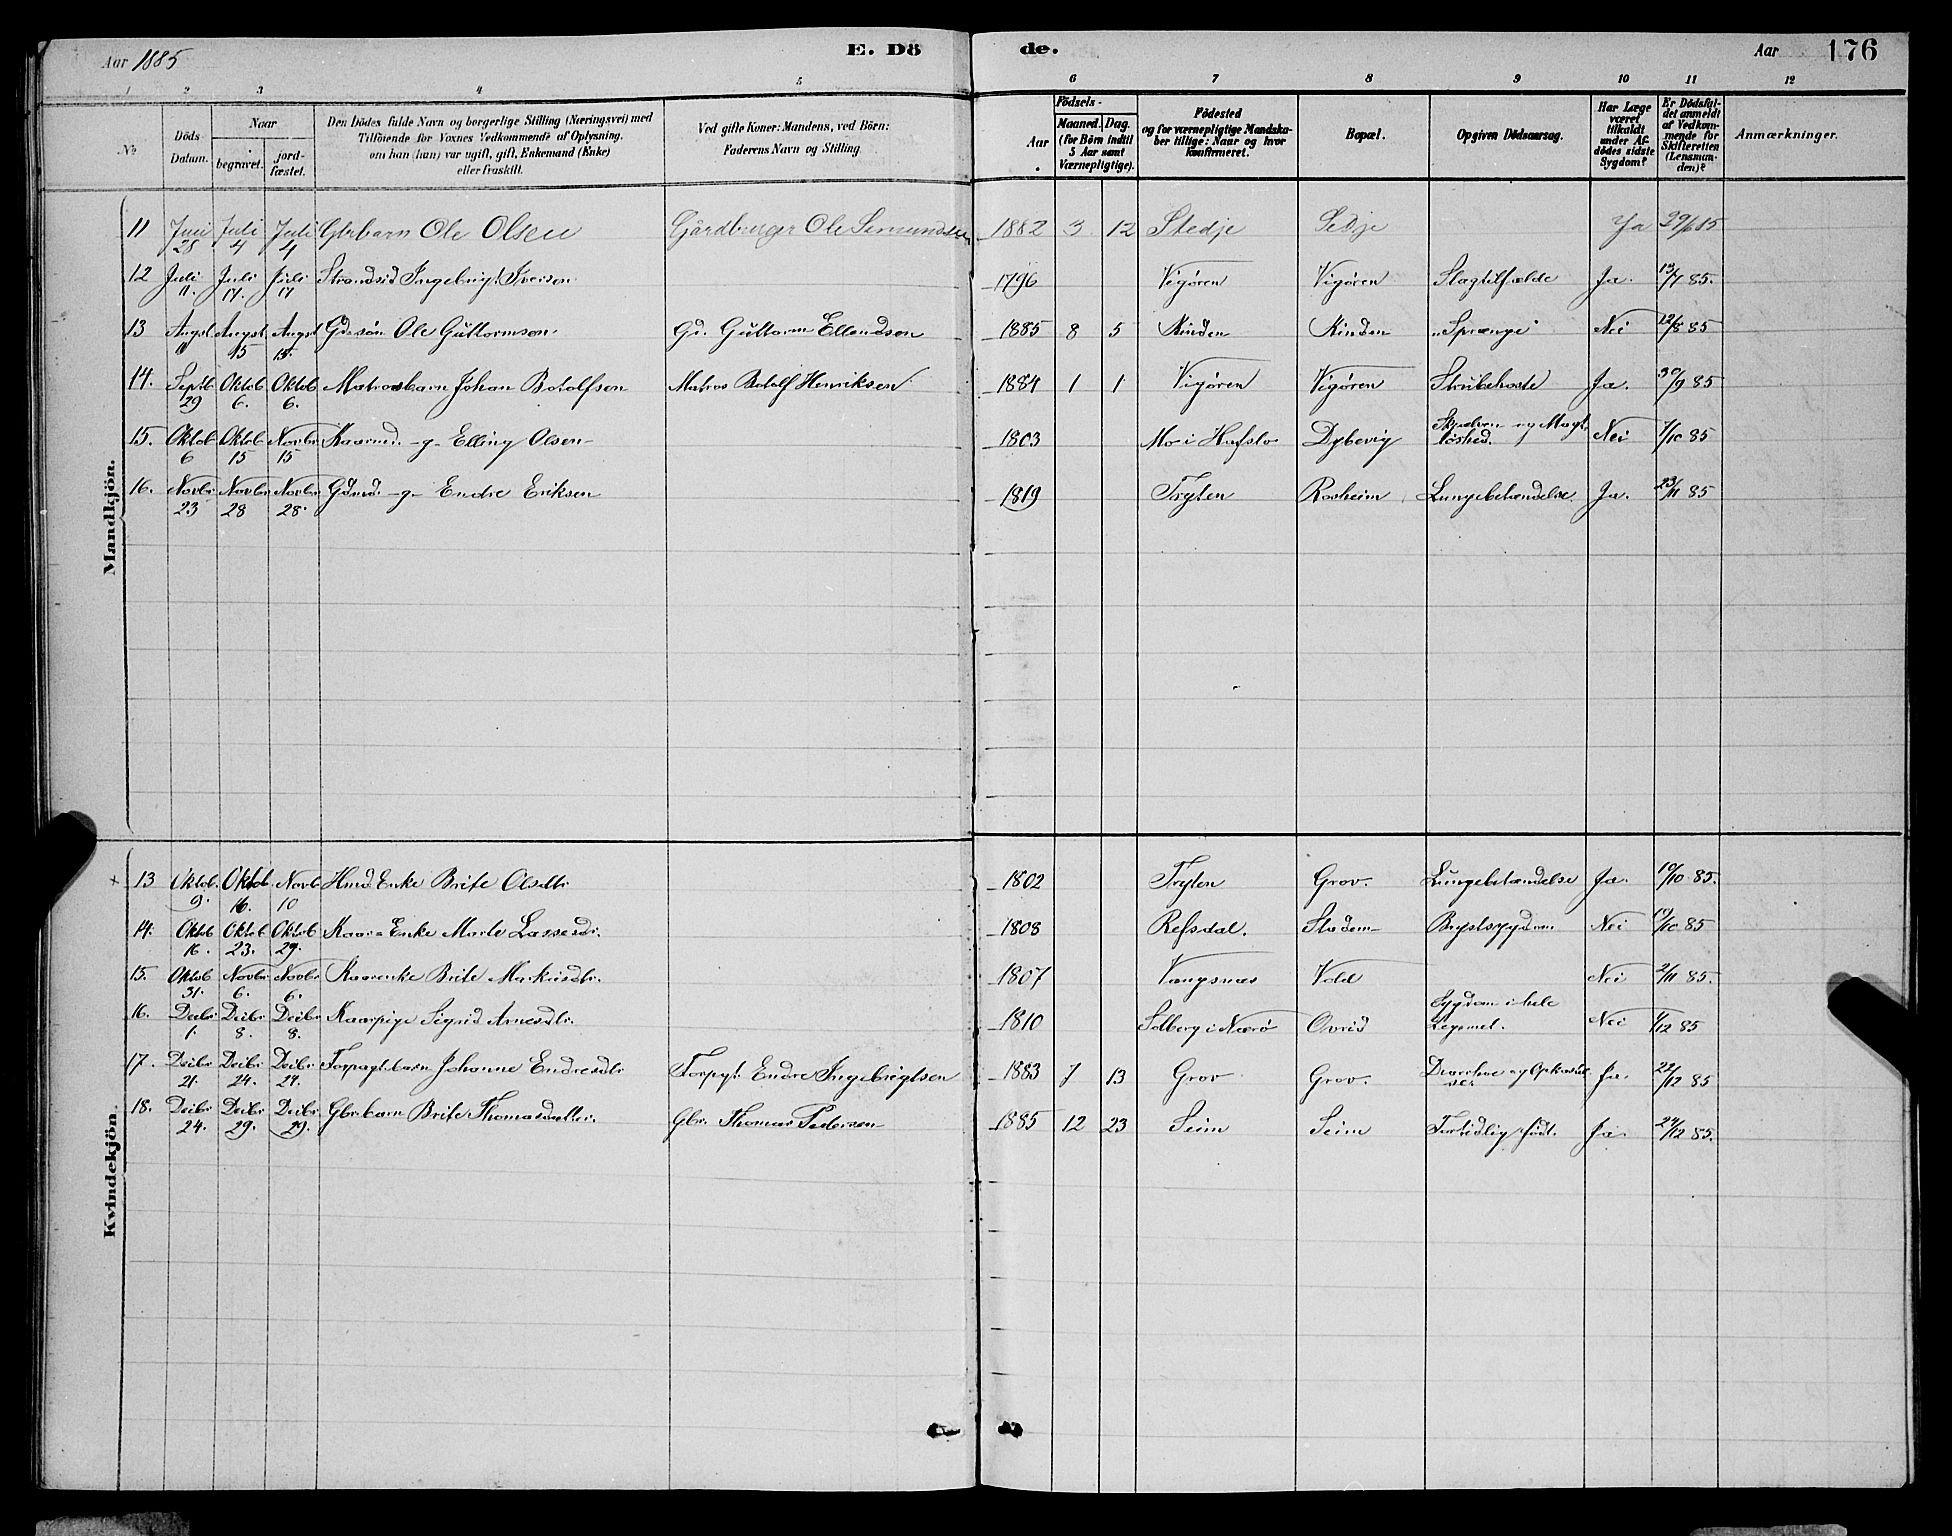 Aar 1885
E. Dö
de.
Aar 176
1 2 3 4 5 6 7 8 9 10 11 12
No
Döds Datum.
Naar
begravet.
jord-fæstet.
Den Dödes fulde Navn og borgerlige Stilling (Næringsvei) med
Tilföiende for Voxnes Vedkommende af Oplysning,
om han (hun) var ugift, gift, Enkemand (Enke)
eller fraskilt.
Ved gifte Koner: Mandens, ved Börn:
Faderens Navn og Stilling.
Födsels-
Aar.
Maaned. Dag.
(for Börn indtil
5 Aar samt
Værnepligtige).
Födested
og for værnepligtige Mandska-
ber tillige: Naar og hvor
konfirmeret.
Bopæl.
Opgiven Dödsaarsag.
Har Læge
været
tilkaldt
under Af-
dödes sidste
Sygdom?
Er Dödsfal-
det anmeldt
af Vedkom-
mende for
Skifteretten
(Lensman-
den)?
Anmærkninger.
Mandkjön.
11 Juni 28 Juli 4 Juli 4 Gbrbarn Ole Olsen Gårdbruger Ole Simundsen 1882 3 12 Stedje Stedje Ja 29/6 85
12 Juli 11. Juli 17. Juli 17 Strandsid Ingebrigt Iversen 1796 Vigören Vigören Slagtilfælde Ja. 13/7 85.
13 Augst 11 Augst 15 Augst 15. Gdssön Ole Guttormsen Gd. Guttorm Ellendsen 1885 8 5 Rinden Rinden „Sprænge" Nei 12/8 85
14. Septb 29 Oktob 6. Oktob 6. Matrosbarn Johan Botolfsen Matros Botolf Henriksen 1884 1 1 Vigören Vigören Strubehoste Ja. 30/9 85
15. Oktob 6 Oktob 15 Novbr 15 Kaarmd. -g- Elling Olsen 1803 Mo i Hafslo Dybevig Skjælven og Magtlöshed. Nei 7/10 85
16. Novbr 23 Novbr 28 Novbr 28. Gdmd. -g- Endre Eriksen 1819 Frylen Rosheim Lungebetændelse. Ja. 23/11 85
Kvindekjön.
+ 13 Oktob. 9. Oktob 16. Novb 10 Hmd. Enke Brite Olsdtr 1802 Frylen Grov. Lungebetændelse Ja. 10/10 85.
14. Oktob 16. Oktob 23. Oktob 29. Kaar-Enke Marte Lassesdr. 1808 Refsdal. Stadem Brystsygdom Nei 19/10 85
15. Oktob 31. Novbr 6. Novbr 6. Kaarenke Brite Markusdtr. 1807 Vangsnæs Vold Nei 2/11 85.
16. Decbr 1. Decbr 8. Decbr 8. Kaarpige Sigrid Arnesdtr. 1810 Solberg i Nærö Ovrid Sygdom i hele Legemet. Nei 1/12 85
17. Decbr 21. Decbr 24. Decbr 24. Torpagtbarn Johanne Endresdtr Torpgt. Endre Ingebrigtsen 1883 7 13 Grov Grov. Diarrhoe og Opkastelser Ja. 22/12 85
18. Decbr 24. Decbr 29. Decbr 29. Gbrbarn Brite Thomasdatter. Gbr. Thomas Pedersen 1885 12 23 Seim Seim Fortidlig födt. Ja. 24/12 85.